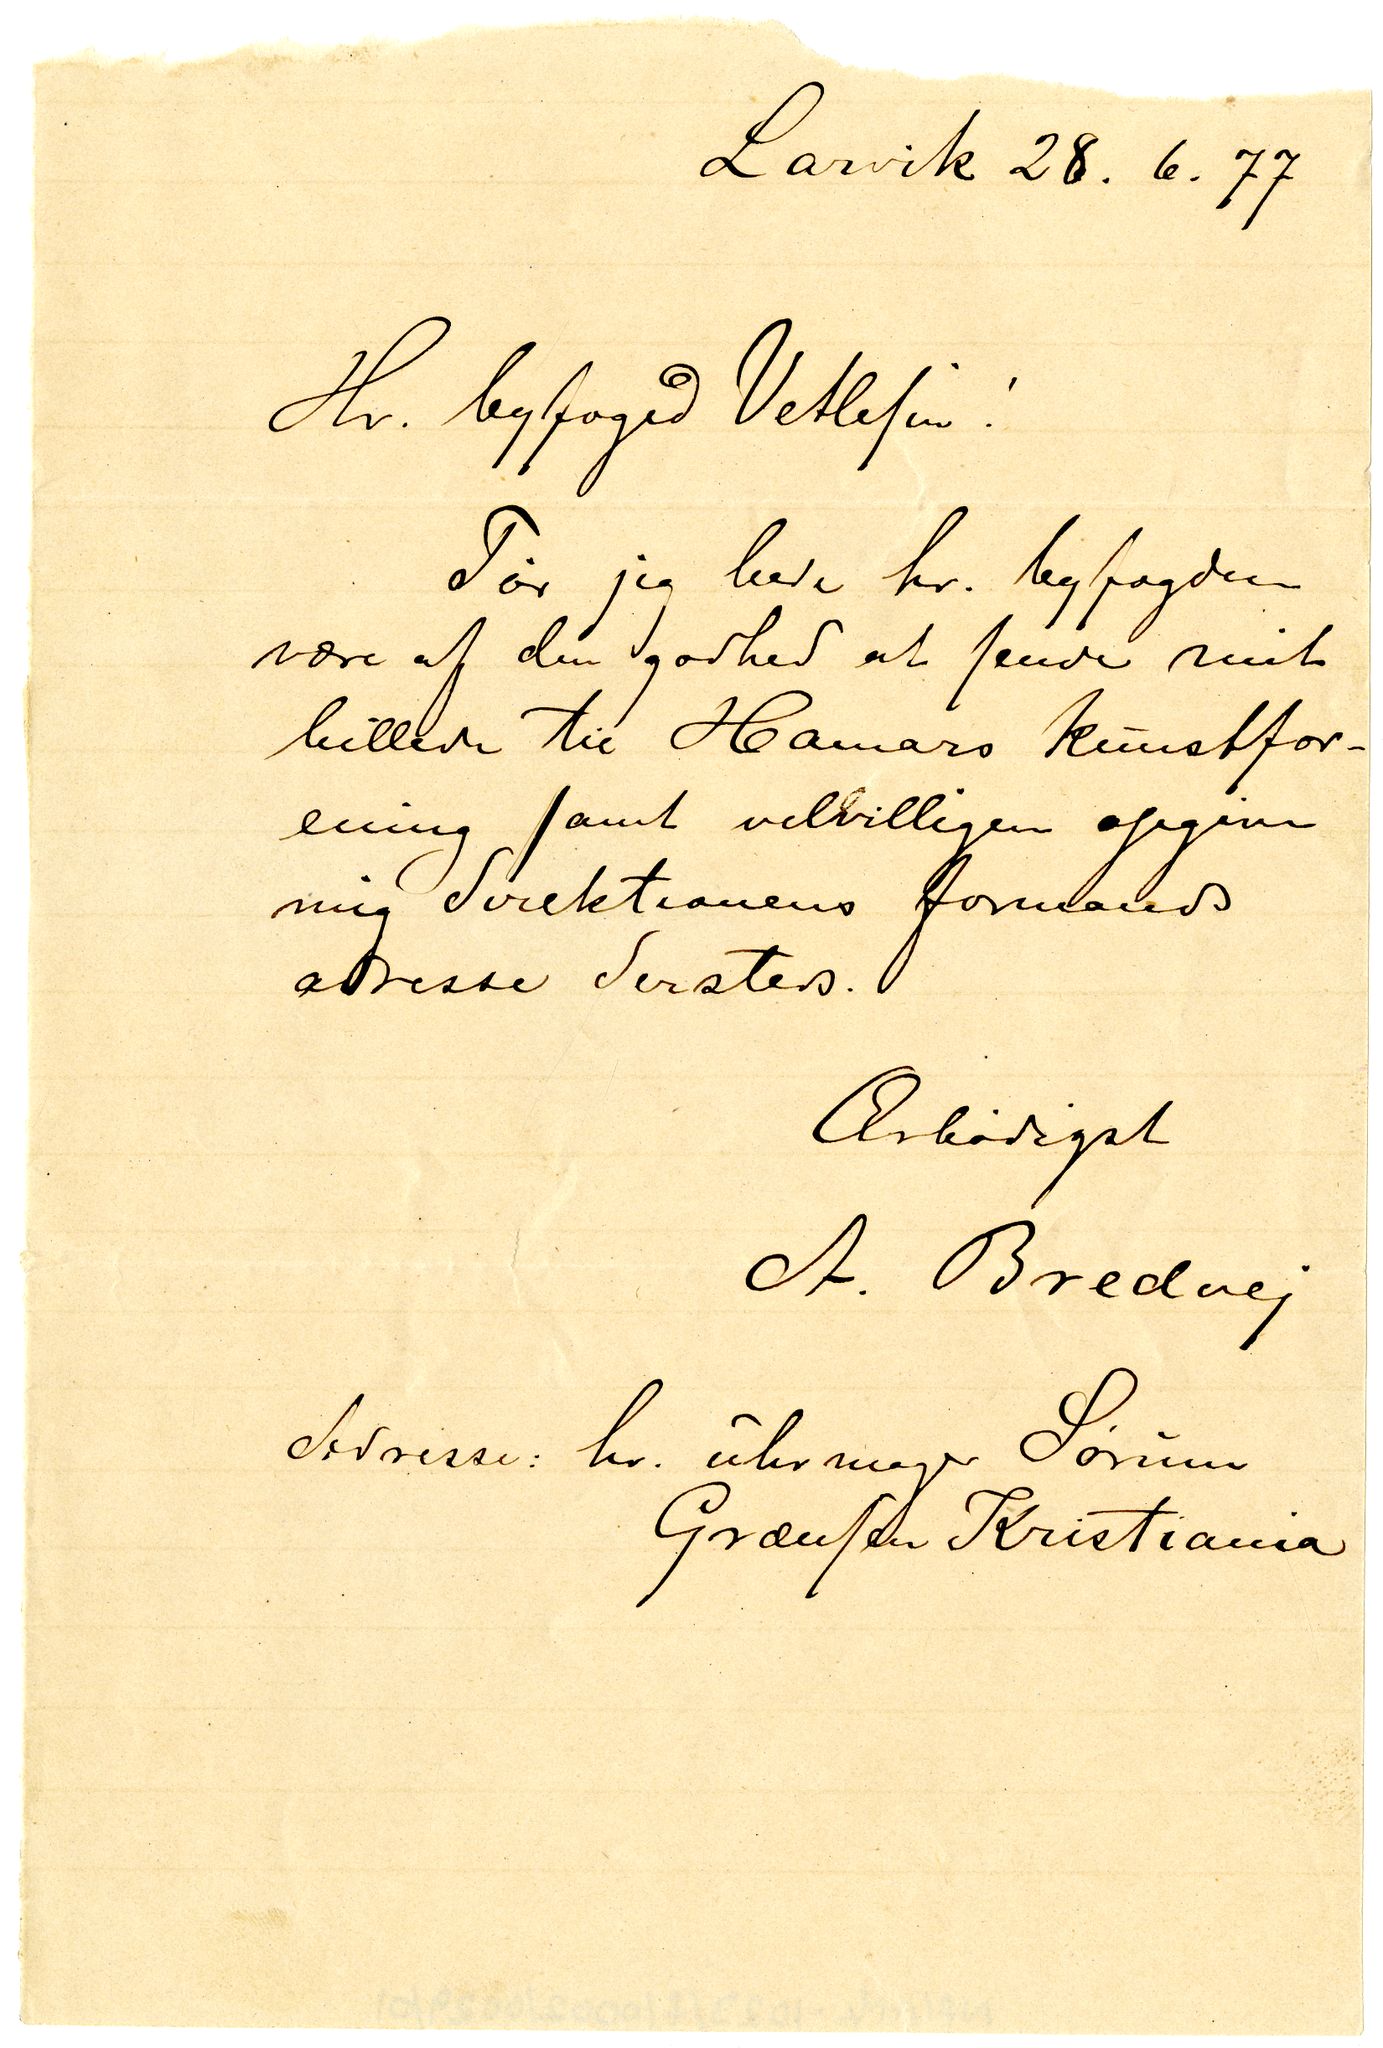 Larvik 28. 6. 77
Hr. byfoged Vetlesen!
Tør jeg bede hr. byfogden
være af den godhed at sende mit
billede til Hamars kunstfor-
ening samt velvilligen opgive
mig direktionens formands
adresse dersteds.
Ærbødigst
A. Bredvej
Adresse: hr. uhrmager Sørum
Grænsen Kristiania